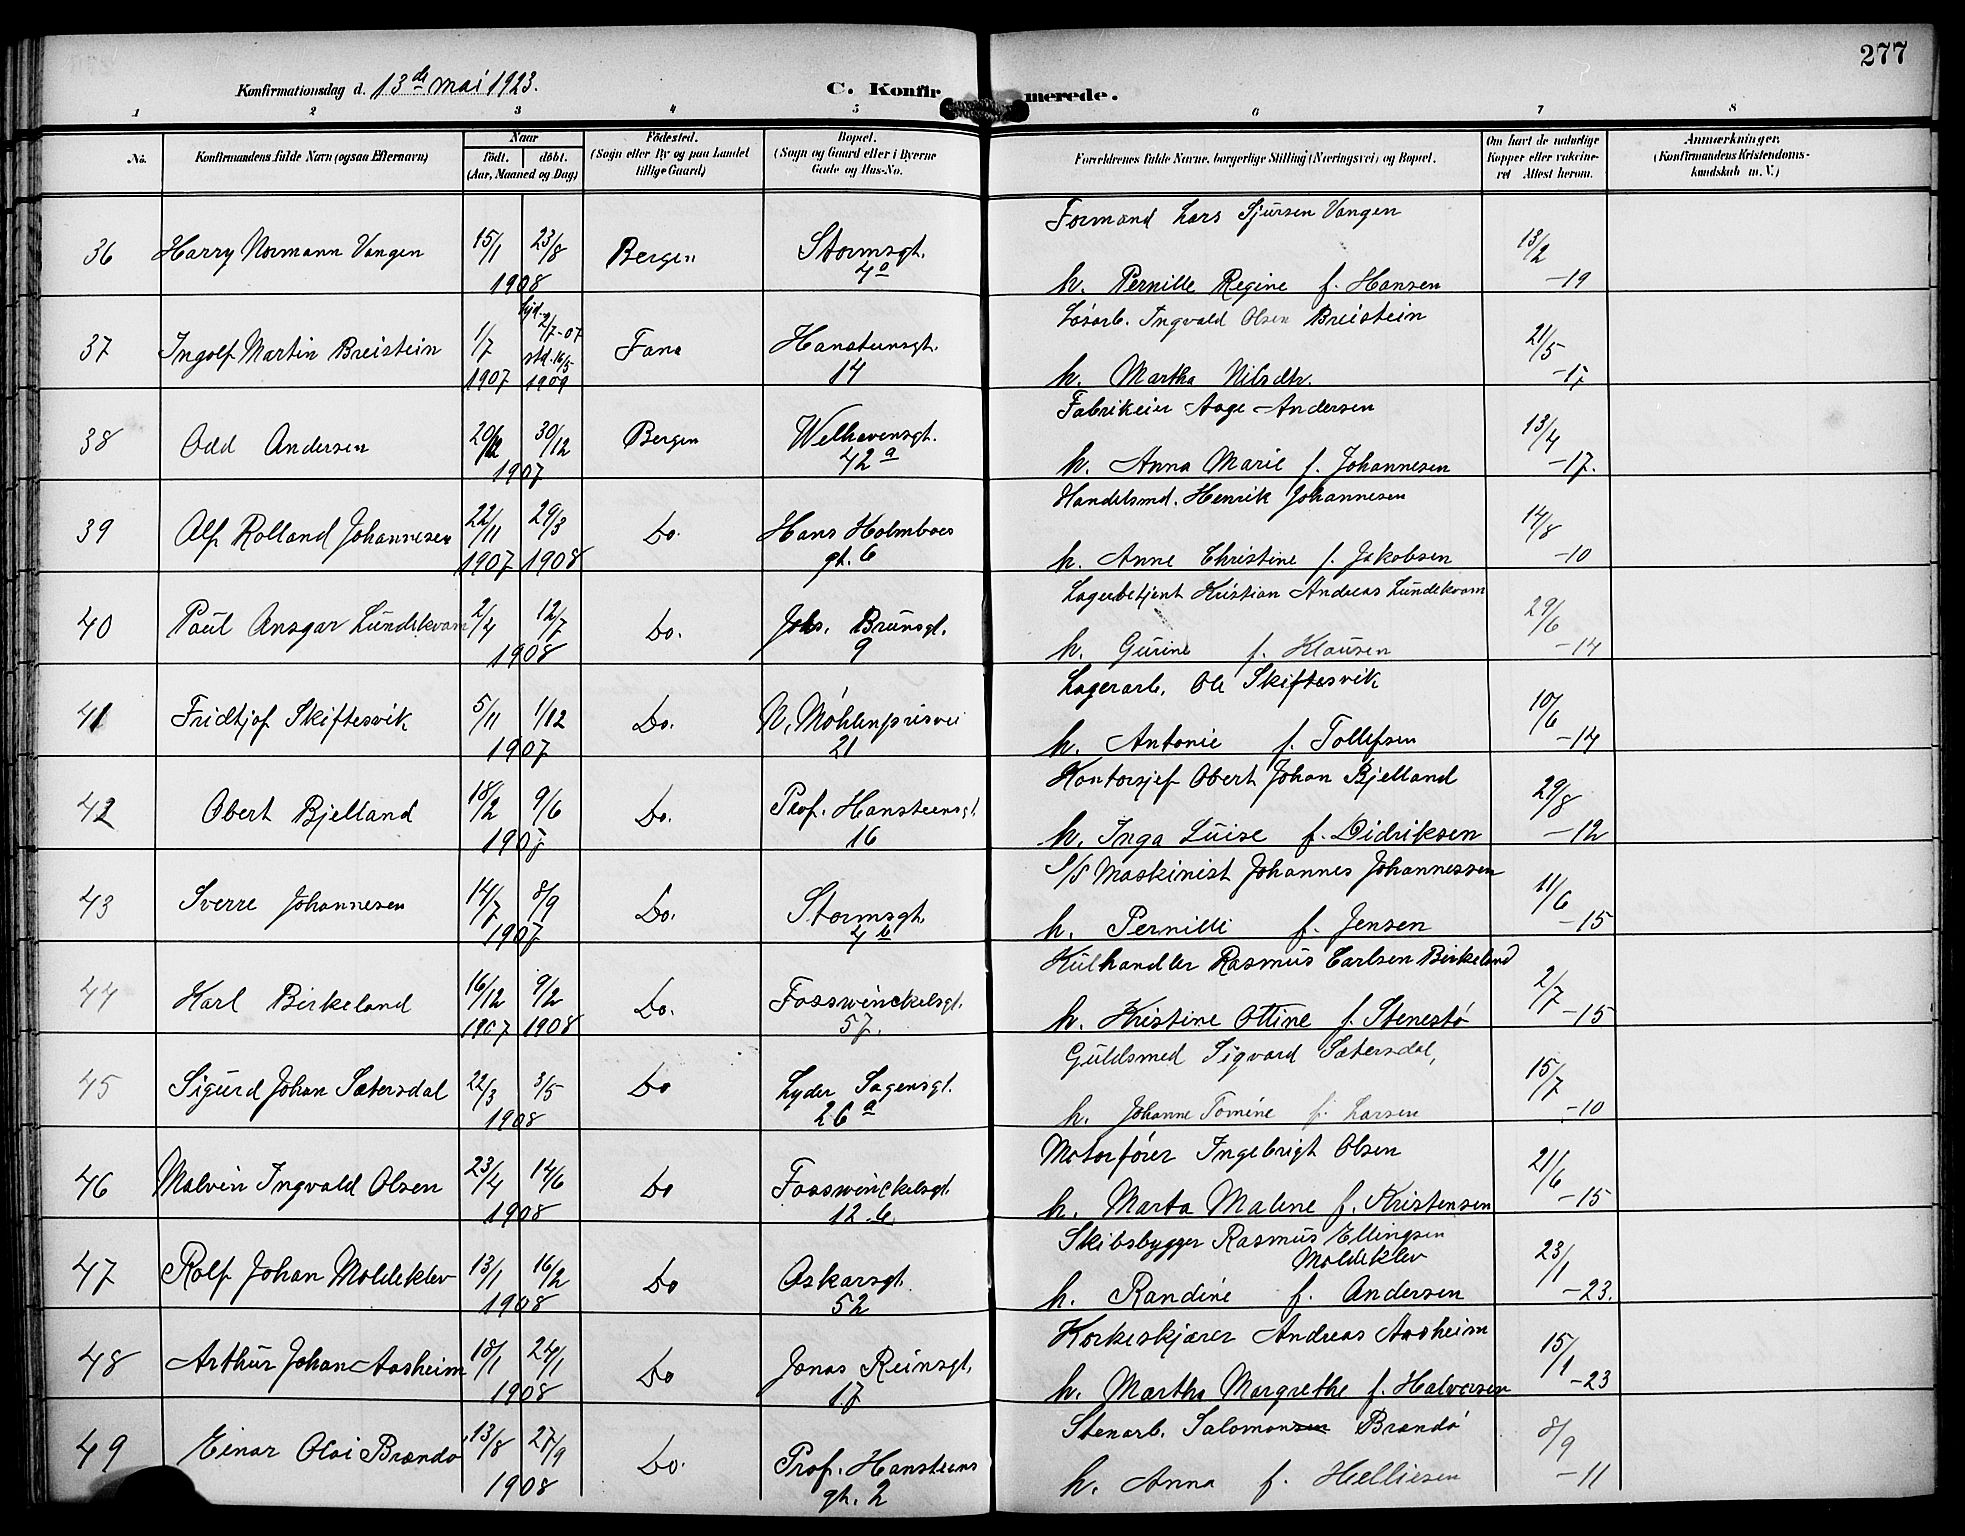 277
Konfirmationsdag d. 13de mai 1923.
C. Konfirmerede.
1 2 3 4 5 6 7 8
No. Konfirmandens fulde Navn (ogsaa Efternavn) Naar født. døbt. (Aar, Maaned og Dag) Fødested. (Sogn eller By og paa Landet tillige Gaard) Bopæl. (Sogn og Gaard eller i Byerne Gade og Hus-No. Forældrenes fulde Navne, borgerlige Stilling (Næringsvei) og Bopæl. Om havt de naturlige Kopper eller vakcineret Attest herom. Anmærkninger. (Konfirmandens Kristendomskundskab m. V.)
Formand Lars Sjursen Vangen
36 Harry Normann Vangen 15/1 23/8 Bergen Stormsgt. 13/2
1908 4a h. Pernille Regine f. Hansen -19
hjd. 2/7-07 Løsarb. Ingvald Olsen Breistein
37 Ingolf Martin Breistein 1/7 std. 16/5 Fana Hansteensgt. 21/5
1907 1909 14 h. Martha Nilsdtr. -17
Fabrikeier Aage Andersen
38 Odd Andersen 20/12 30/12 Bergen Welhavensgt. 13/4
1907 42a h. Anna Marie f. Johannesen -17.
Handelsmd. Henrik Johannesen
39 Alf Rolland Johannesen 22/11 29/3 Do. Hans Holmboes 14/8
1907 1908 gt. 6 h. Anne Christine f. Jakobsen -10
Lagerbetjent Kristian Andreas Lundekvam
40 Paul Ansgar Lundekvam 2/4 12/7 Do. Johs. Brunsgt. 29/6
1908 9 h. Gurine f. Klausen -14
Lagerarb. Ole Skiftesvik
41 Fridtjof Skiftesvik 5/11 1/12 Do. N. Møhlenprisvei 10/6
1907 21 h. Antonie f. Tollefsen -14
Kontorsjef Obert Johan Bjelland
42 Obert Bjelland 18/2 9/6 Do. Prof. Hansteensgt. 29/8
1907 16 h. Inga Luise f. Didriksen -12
S/S Maskinist Johannes Johannessen
43 Sverre Johannesen 14/7 8/9 Do. Stormsgt. 11/6
1907 4b h. Pernille f. Jensen -15
Kulhandler Rasmus Carlsen Birkeland
44 Karl Birkeland 16/12 9/2 Do. Fosswinckelsgt. 2/7
1907 1908 57. h. Kristine Ottine f. Stenestø -15
Guldsmed Sigvard Sætersdal,
45 Sigurd Johan Sætersdal 22/3 3/5 Do Lyder Sagensgt. 15/7
1908 26a h. Johanne Tomine f. Larsen -10
Motorfører Ingebrigt Olsen
46 Malvin Ingvald Olsen 23/4 14/6 Do Fosswinckelsgt. 21/6
1908 12.b. h. Marta Malene f. Kristensen -15
Skibsbygger Rasmus Ellingsen
Moldeklev
47 Rolf Johan Moldeklev 13/1 16/2 Do Oskarsgt. 23/1
1908 52 h. Randine f. Andersen -23.
Korkeskjærer Andreas Aasheim
48 Arthur Johan Aasheim 18/1 24/1 Do Jonas Reinsgt. 15/1
1908 17 h. Martha Margrethe f. Halvorsen -23
Stenarb. Salomonsen Brandø
49 Einar Olai Brandø 13/8 27/9 Do. Prof. Hansteens 8/9
1908 gt. 2 h. Anna f. Helliesen -11